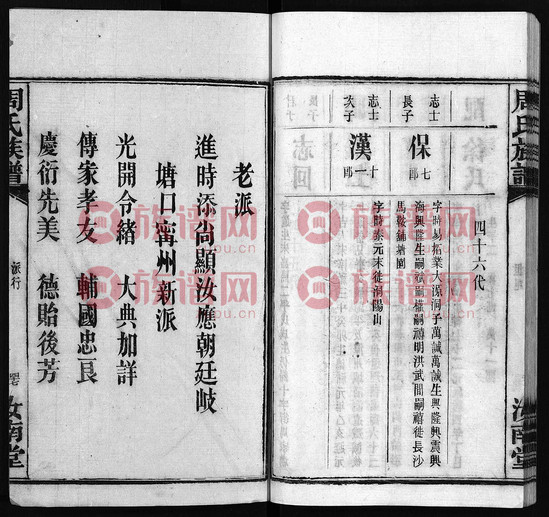 周氏族譜
四十六代
志士
長子
保七郎
字時易拓業大源洞子萬誠萬誠生興隆興震興
海興隆生嗣嗣權嗣禧明洪武間嗣禧徙長沙
馬鞍舖塘園
志士
次子
漢十一郎
字時泰元末徙瀏陽山
汝南堂
老派
進時添尚顯汝應朝廷岐
塘口甯州新派
光開令緒 大典加詳
傳家孝友 輔國忠良
慶衍先美 德貽後芳
周氏族譜
派行
汝南堂
族谱网